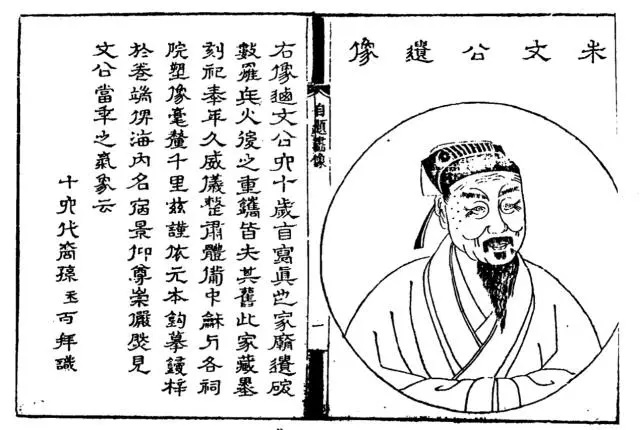 朱文公遺像
自題畫像
一
右像迺文公六十歲自寫真也家廟遺
數罹兵火後之重鐫皆失其舊此家藏墨
刻祀奉年久威儀整肅體備中龢各祠
院塑像毫釐千里茲謹依元本鈎摹鋟梓
於卷端俾海內名宿景仰尊崇儼然見
文公當年之氣象云
十六代裔孫玉百拜識